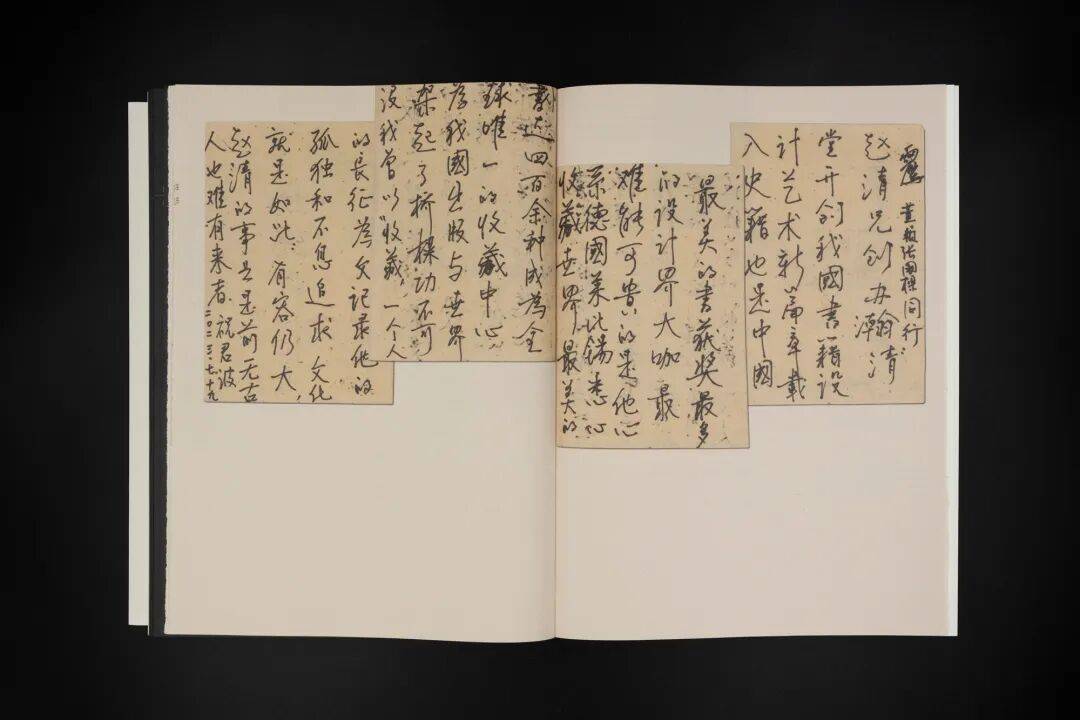 同行
赵清兄创办瀚清
堂开创我國書籍设
计艺术新篇章載
入史籍也是中國
最美的書获奖最多
的设计界大咖最
难能可贵的是他心
系德國莱比锡悉心
收藏世界最美的
書近四百余种成為全
球唯一的收藏中心
為我國出版与世界
架起了桥樑功不可
没我曾以“收藏,一个人
的長征為文记录他的
孤独和不息追求文化
就是如此,有容仍大,
赵清的事业是前无古
人也难有来者.祝君波
二〇二三.七.十九